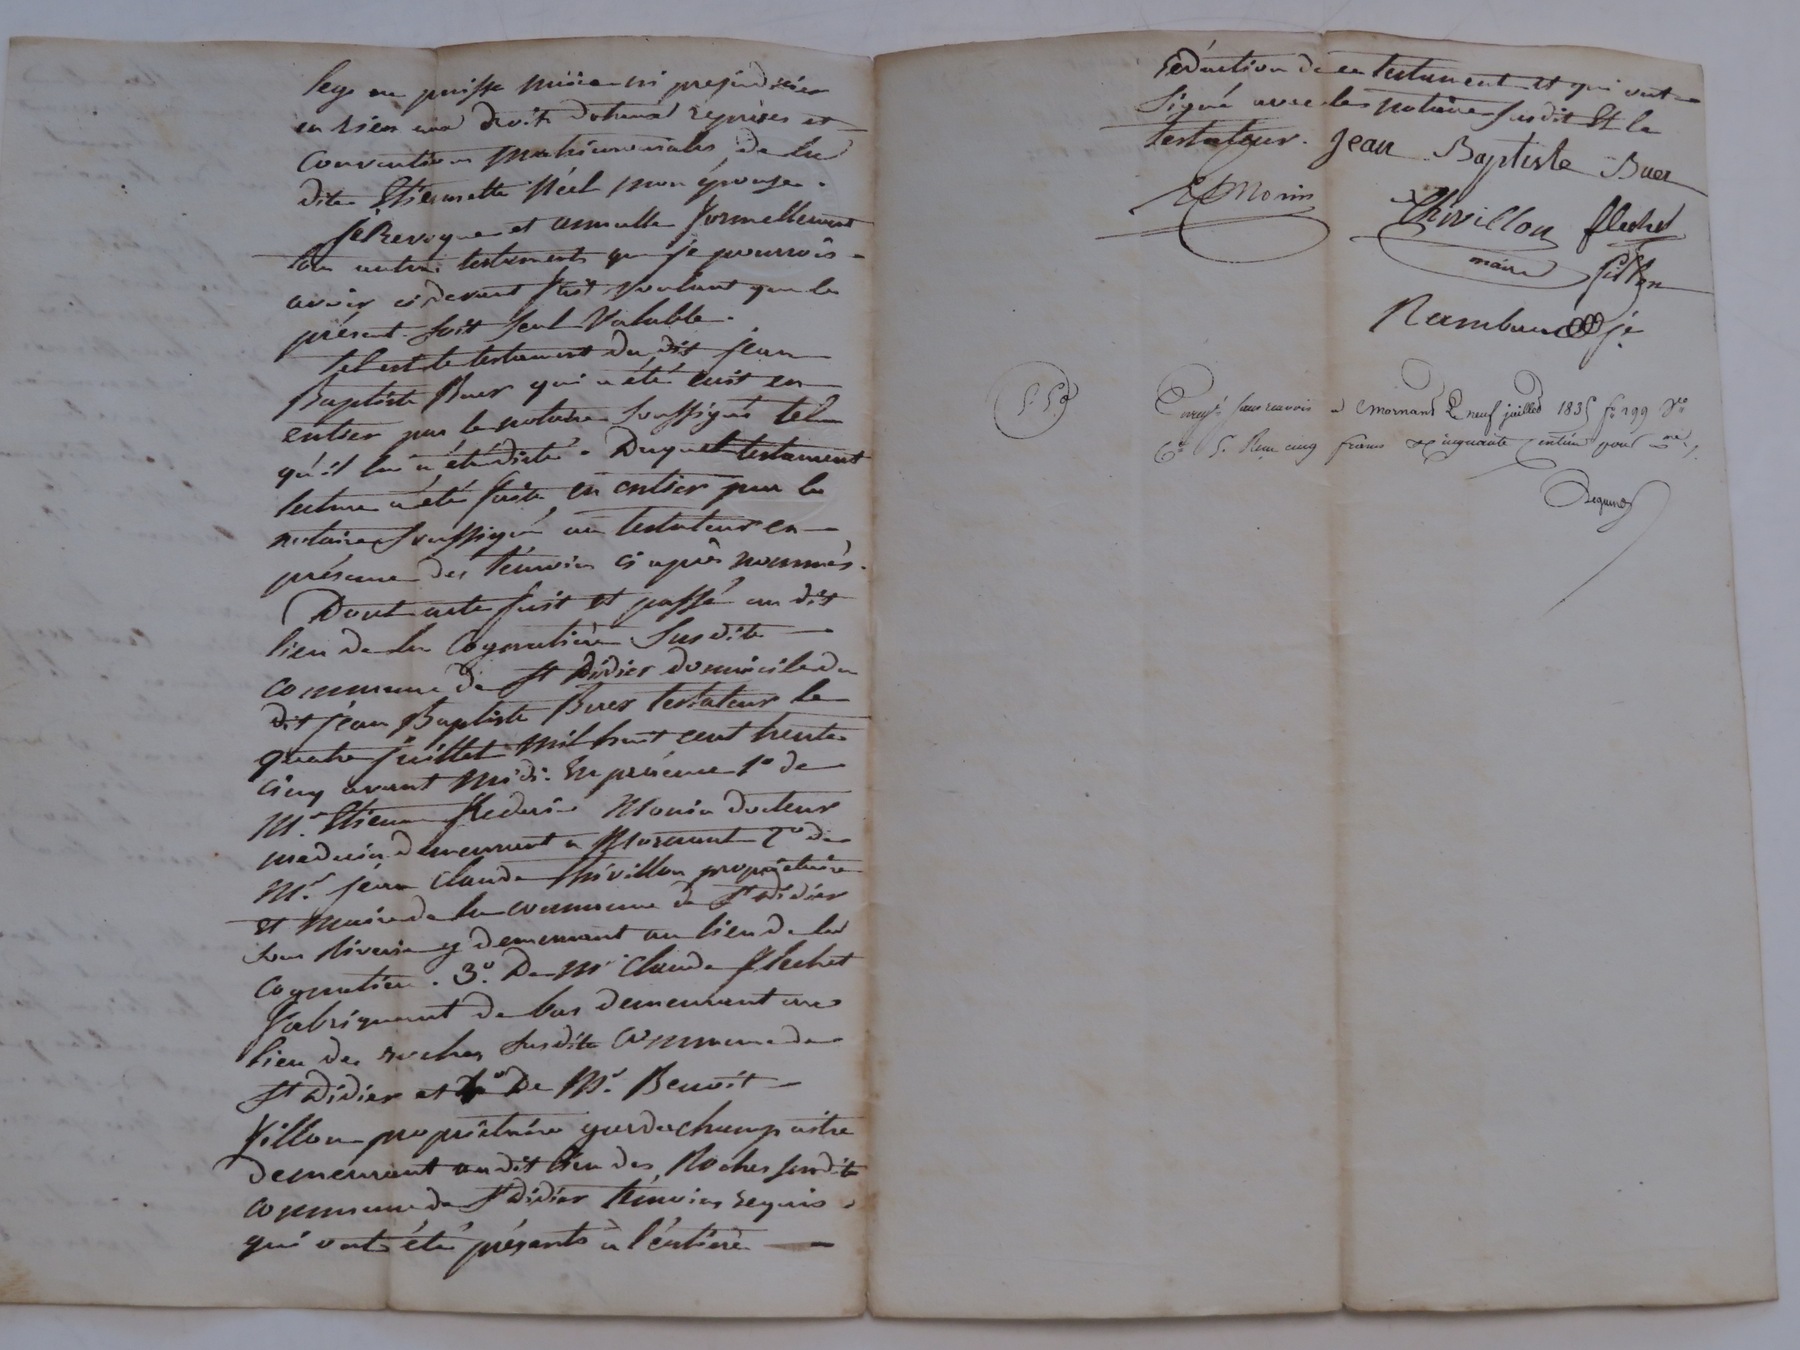 legs ne puisse nuire ni prejudicier
en rien aux droits dotaux reprises et
conventions matrimoniales de la
dite Etiennette Néel mon épouse.
Je Revoque et annulle formellement
tous autres testaments que je pourrois
avoir cidevant fait voulant que le
présent soit seul valable.
Tel est le testament du dit jean
Baptiste Buer qui a été écrit en
entier par le notaire soussigné tel
qu'il lui a été dicté. Duquel testament
lecture a été faite en entier par le
notaire soussigné au testateur en
présence des témoins ci après nommés.
Dont acte fait et passé au dit
lieu de la Cognatière susdite
commune de St Didier domicile du
dit jean Baptiste Buer testateur le
quatre juillet mil huit cent trente
cinq avant midi. En présence 1º de
Mr. Etienne Frederic Morin docteur
medecin demeurant a Mornant 2º de
Mr. jean Claude Thivillon propriétaire
et Maire de la commune de St Didier
sous Riverie y demeurant au lieu de la
Cognatière. 3º. De Mr Claude flechet
fabriquant de bas demeurant au
lieu des roches susdite commune de
St Didier et 4º De Mr. Benoit
Villon propriétaire garde champaitre
demeurant au dit lieu des Roches susdite
commune de St Didier témoins requis
qui ont été présents à l'entière
rédaction de ce testament et qui ont
signé avec le notaire susdit Et le
testateur. Jean Baptiste Buer
Morin Thivillon flechet
maire
Rambaud
Enregté sans renvois a Mornant le neuf juillet 1835 fo 199 Vo
Ce 5. Reçu cinq francs cinquante centimes pour